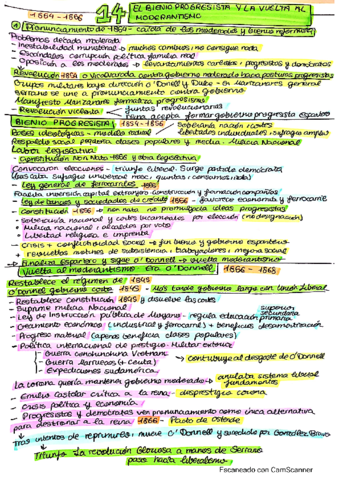 1854 - 1856 14 EL BIENIO PROGRESISTA Y LA VUELTA AL MODERANTISMO
Pronunciamiento de 1854 - caída de los moderados y bienio reformista
Problemas década moderada
- Inestabilidad ministerial → muchos cambios no consigue nada
- Escándalos corrupción política familia real
- Oposición a los moderados → levantamientos carlistas, progresistas y demócratas
Revolución 1854 o Vicalvarada contra gobierno moderado hacia posturas progresistas
Grupos militares bajo dirección O'Donell y Dulce → en Manzanares general Serrano se une a pronunciamiento contra gobierno
- Manifiesto Manzanares formaliza progresismo
- Revolución violenta juntas revolucionarias
reina acepta formar gobierno progresista Espartero
BIENIO PROGRESISTA 1854 - 1856 soberanía nación cortes
Bases ideológicas - modelo radical libertades individuales, sufragio
Respaldo social pequeña clases populares y media - Milicia Nacional
Labor legislativa
- Constitución Non Nata 1856 y obra legislativa
Convocaron elecciones → triunfo liberal. Surge partido demócrata
- Ley general de ferrocarriles 1855
Facilita inversión capital extranjero construcción y formación compañías
- Ley de bancos y sociedades de crédito 1856 - favorece economía y ferrocarril
- Constitución → 1856 → non nata no promulgada ideas progresistas
- soberanía nacional y cortes bicamerales por elección (no designación)
- Milicia nacional alcaldes por voto
- Libertad religiosa e imprenta
- Crisis + conflictividad social → fin bienio y gobierno Espartero
- revueltas motines de subsistencia, trabajadores, mejora social
→ Finaliza Espartero y sigue O'Donell → vuelta moderantismo
Vuelta al moderantismo - Era O'Donnell 1856 - 1868
Restablece el régimen de 1845
O'Donell gobierno corto 1845 - Más tarde gobierno largo con Unión Liberal
- Restablece Constitución 1845 y disuelve las cortes
- Suprime milicia Nacional superior
secundaria
- Ley de Instrucción pública de Moyano - regula educación primaria
- Crecimiento económico (industrial y ferrocarril) + beneficios desamortización
- Progreso material (apenas beneficia clases populares)
- Política internacional de prestigio - Militar exterior
- Guerra conchinchina Vietnam
- Guerra Marruecos (+ Ceuta)
- Expediciones sudamérica
contribuye al desgaste de O'Donell
La corona quería mantener gobierno moderado → anulaba sistema liberal fundamentos
- Emilio Castelar crítica a la reina - desprestigio corona
- Crisis política y economía
- Progresistas y demócratas ven pronunciamiento como única alternativa para destronar a la reina 1866 - Pacto de Ostende
Tras intentos de reprimirles, muere O'Donell y sucedido por González Bravo
Triunfo La revolución Gloriosa a manos de Serrano
paso hacia liberalismo
Escaneado con CamScanner